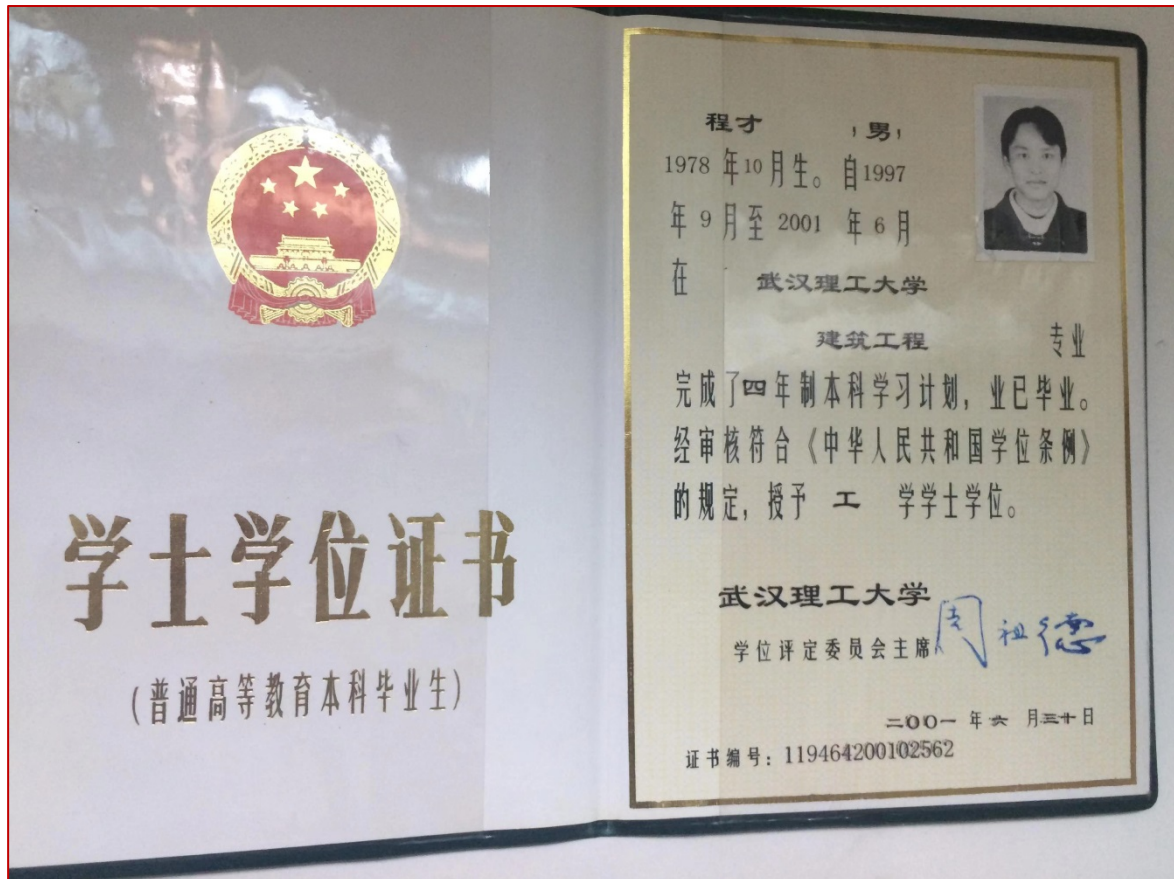 学士学位证书
(普通高等教育本科毕业生)
程才 ,男,
1978 年10月生。自1997
年 9 月至 2001 年 6 月
在 武汉理工大学
建筑工程 专业
完成了四年制本科学习计划,业已毕业。
经审核符合《中华人民共和国学位条例》
的规定,授予 工 学学士学位。
武汉理工大学
学位评定委员会主席 周祖德
二00一 年 六 月三十日
证书编号:119464200102562